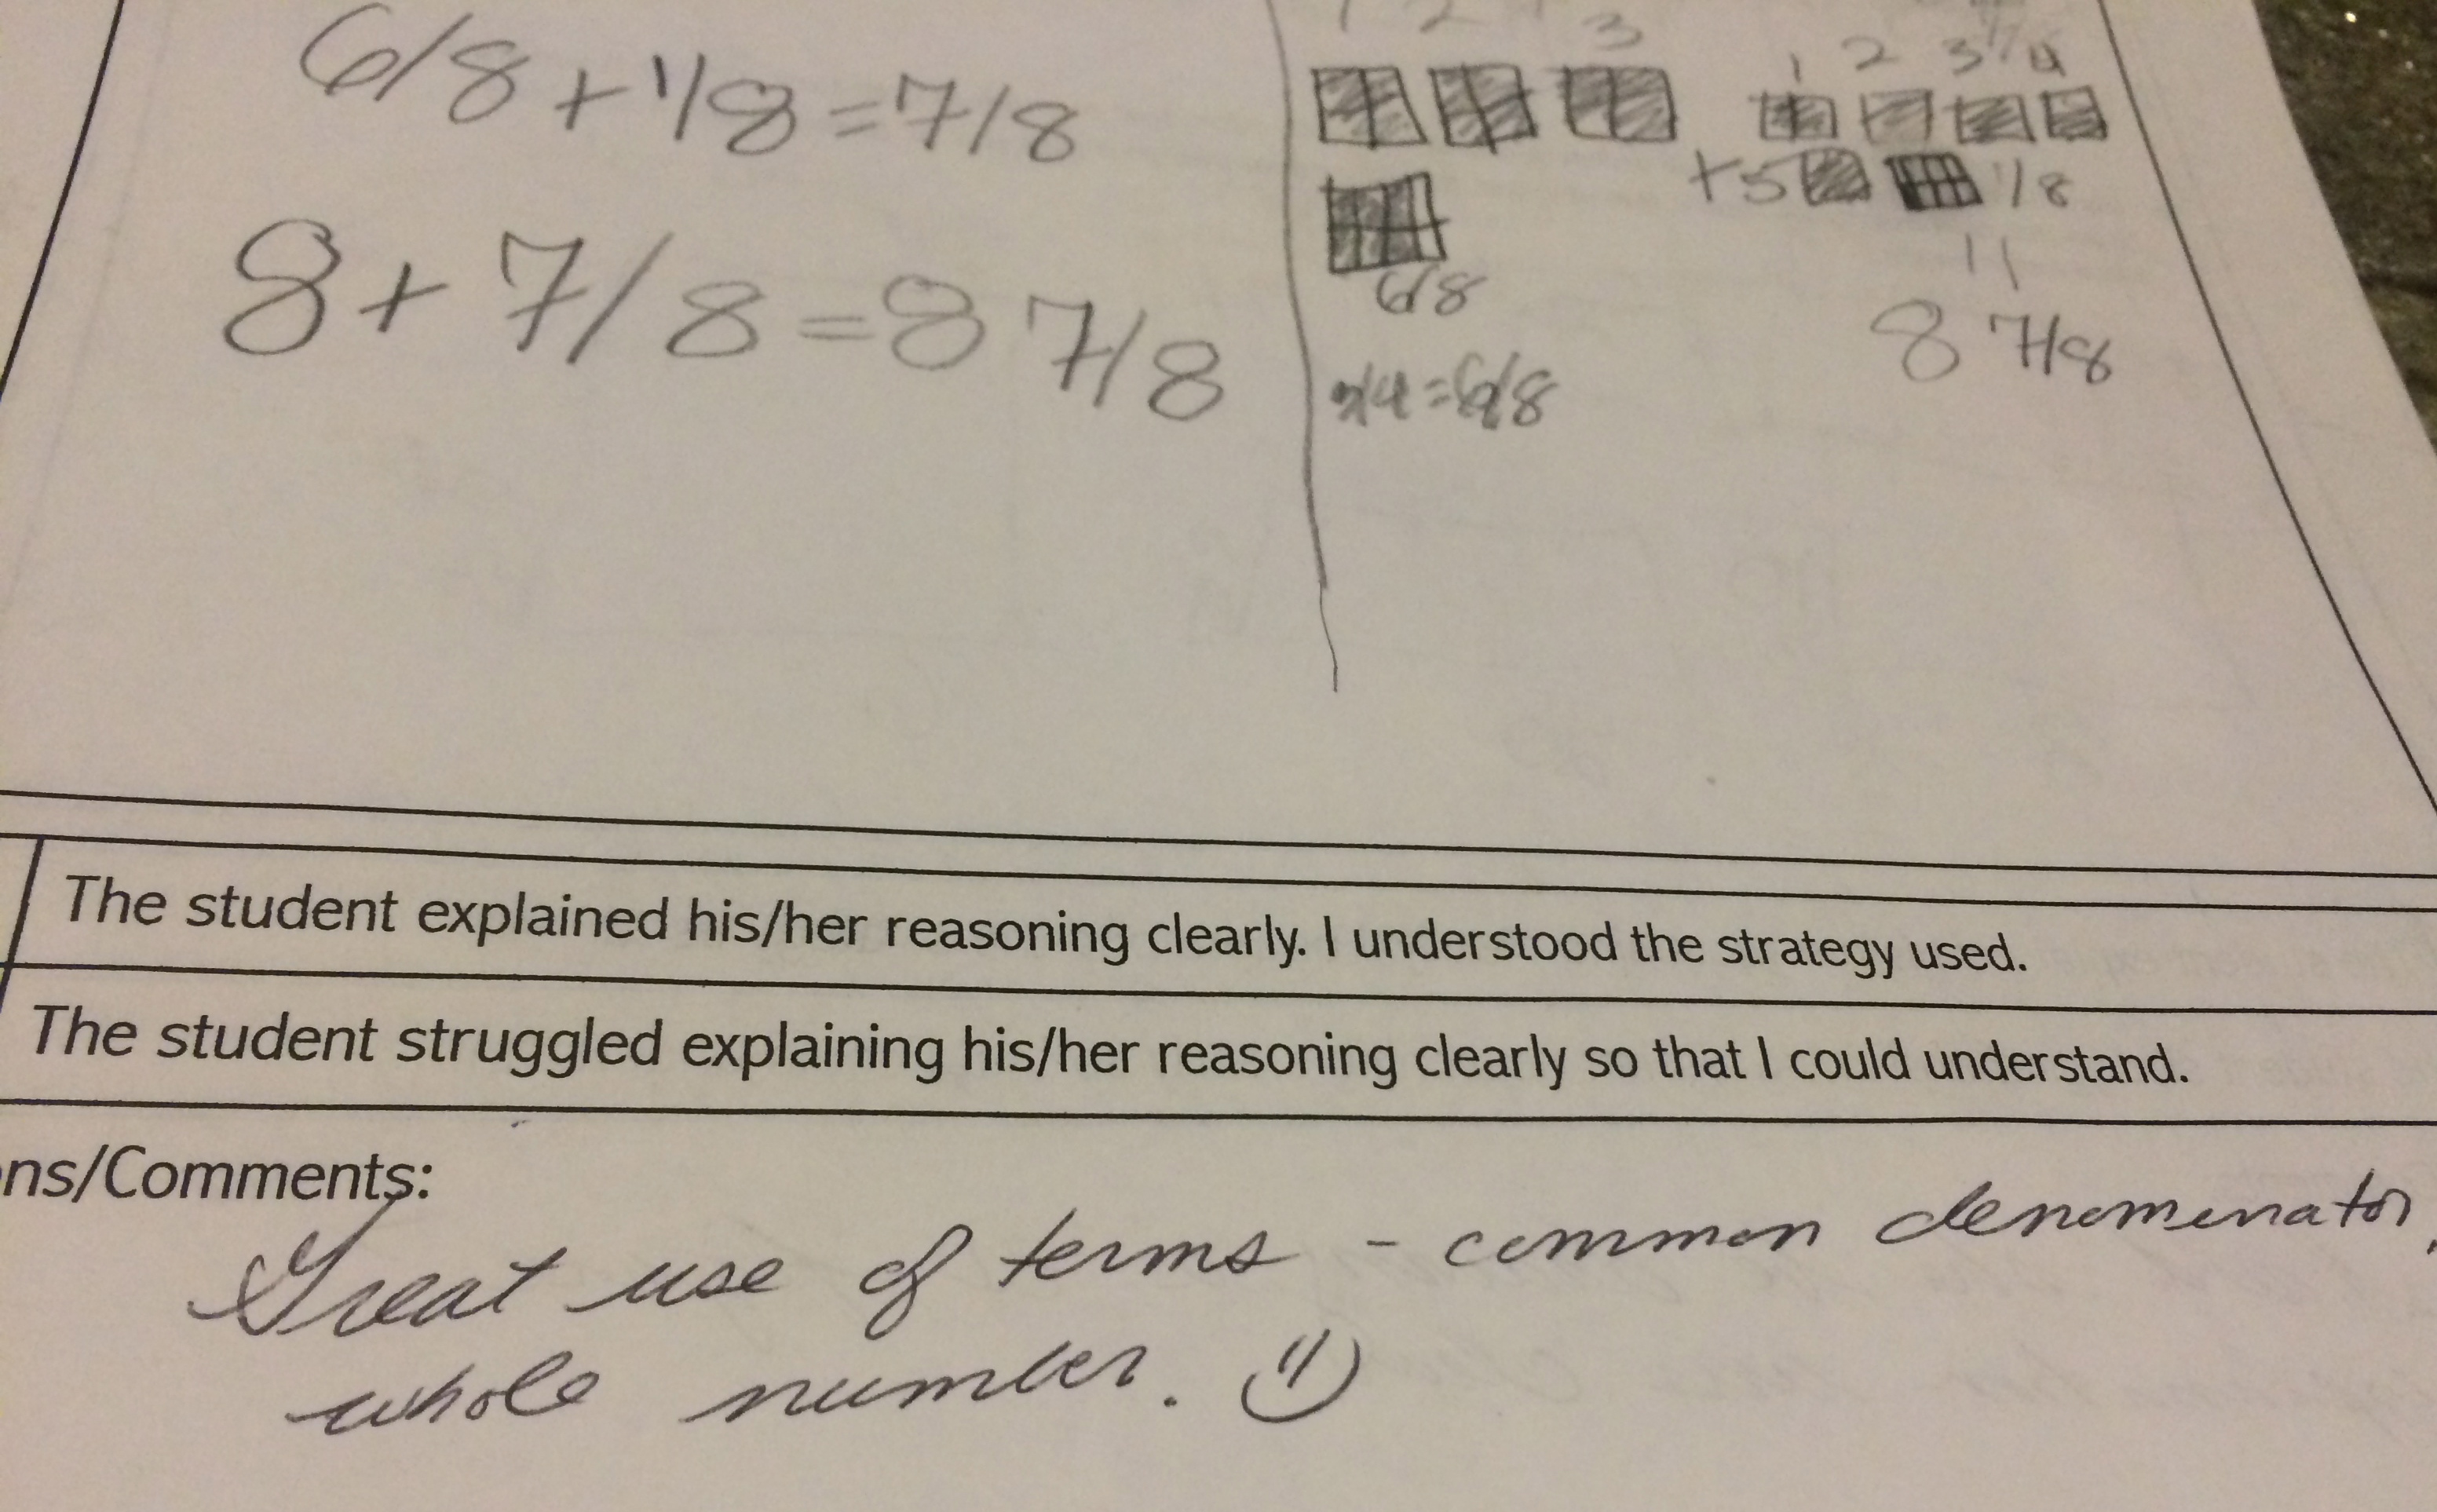 6/8 + 1/8 = 7/8
8 + 7/8 = 8 7/8
1 2 3
6/8
3/4 = 6/8
1 2 3 4
+ 5 1/8
8 7/8
The student explained his/her reasoning clearly. I understood the strategy used.
The student struggled explaining his/her reasoning clearly so that I could understand.
ns/Comments:
Great use of terms - common denomenator,
whole number.